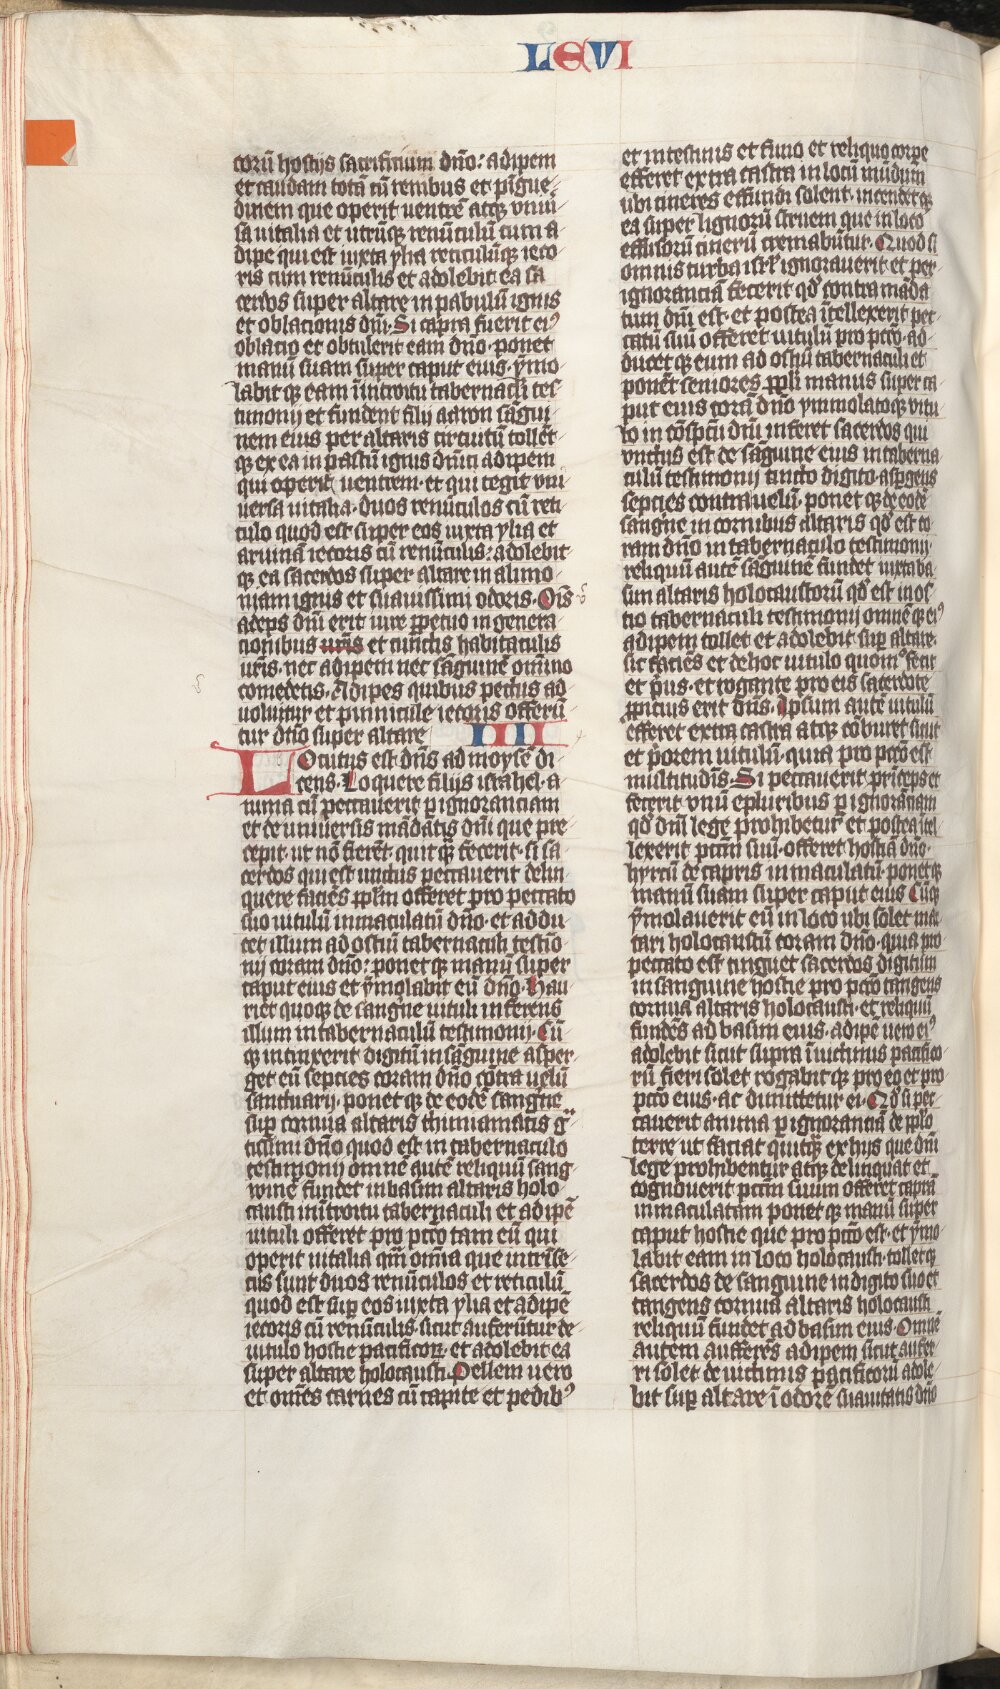 LEVI
corū hostijs sacrificium dn̄o: adipem
et caudam totā cū renibus et pīgue-
dinem que operit uentrē atq; vniū-
sa uitalia et utrūq; renūculū cum a-
dipe qui est iuxta ylia reticulūq; ieco-
ris cum renūculis et adolebit ea sa-
cerdos super altare in pabulū ignis
et oblacionis dn̄i. Si capra fuerit eiꝰ
oblatio et obtulerit eam dn̄o. ponet
manū suam super caput eius. ȳmo-
labit q; eam ī introitu tabernac̄li tes-
timonij et fundent filij aaron sāgui-
nem eius per altaris circuitū tollēt-
q; ex ea in pastū ignis dn̄ici adipem
qui operit uentrem. et qui tegit vni-
uersa uitalia. duos renūculos cū reti-
culo quod est super eos iuxta ylia et
aruinā iecoris cū renūculis: adolebit-
q; ea sacerdos super altare in alimo-
niam ignis et suauissimi odoris. Oīs
adeps dn̄i erit iure ꝑpetuo in genera-
cionibus ur̄is et cunctis habitaculis
ur̄is. nec adipem nec sāguinē om̄ino
comedetis. Adipes quibus pectus ad
uoluitur et pinnicule iecoris offerū-
tur dn̄o super altare IIII
LOcutus est dn̄s ad moysē di-
cens. Loquere filijs israhel. a-
nima cū peccauerit ꝑ ignoranciam
et de uniuersis mādatis dn̄i que pre-
cepit. ut nō fierēt. quitq̄ fecerit. si sa-
cerdos qui est unctus peccauerit delin-
quere faciēs pp̄lm offeret pro peccato
suo uitulū inmaculatū dn̄o. et addu-
cet illum ad ostiū tabernaculi testio-
nij coram dn̄o: ponet q; manū super
caput eius et ȳmolabit eū dn̄o. Hau-
riet quoq; de sangn̄e uituli inferens
illum in tabernaculū testimonij. Cū-
q; intinxerit digitū in sāguine asper-
get eū septies coram dn̄o cōtra uelū
sanctuarij. ponet q; de eodē sangn̄e
suꝑ cornua altaris thimiamatis ḡ-
tissimi dn̄o quod est in tabernaculo
testimonij omnē autē reliquū sang-
winē fundet in basim altaris holo-
causti in ītroitu tabernaculi et adipē
uituli offeret pro pc̄co tam eū qui
operit uitalia qm̄ om̄ia que intrīse-
cus sunt duos renūculos et reticulū
quod est suꝑ eos iuxta ylia et adipē
iecoris cū renūculis. sicut auferūtur de
uitulo hostie pacificoꝝ. et adolebit ea
super altare holocausti. Pellem uero
et om̄es carnes cū capite et pedibꝰ
et intestinis et fimo et reliquo corꝑe
efferet extra castra in locū mūdum
ubi cineres effundi solent. incendet q;
ea super lignorū struem que in loco
effusorū cinerū cremabūtur. Quod si
omnis turba isrl̄ ignorauerit et per
ignoranciā fecerit qd̄ contra māda-
tum dn̄i est. et postea ītellexerit pec-
catū suū offeret uitulū pro pc̄co. ad-
ducet q; eum ad ostiū tabernaculi et
ponēt seniores pp̄li manus super ca-
put eius corā dn̄o ymmolato q; vitu-
lo in cōspc̄tu dn̄i inferet sacerdos qui
vnctus est de sāguine eius in taberna-
culū testimonij tincto digito. aspgens
septies contra uelū. ponet q; de eodē
sāngn̄e in cornibus altaris qd̄ est co-
ram dn̄o in tabernaculo testimonij.
reliquū autē sāguinē fundet iuxta ba-
sim altaris holocaustorū qd̄ est in os-
tio tabernaculi testimonij omnē q; eiꝰ
adipem tollet et adolebit suꝑ altare.
sic faciēs et de hoc uitulo quom̄o fecit
et pͥus. et rogante pro eis sacerdote
ꝓpicius erit dn̄s. Ipsum autē uitulū
efferet extra castra atq; cōburet sicut
et pͥorem uitulū. quia pro pc̄co est
multitudīs. Si peccauerit prīceps et
fecerit vnū e pluribus ꝑ ignorāciam
qd̄ dn̄i lege prohibetur et postea ītel-
lexerit pc̄cm suū. offeret hostiā dn̄o.
hyrcū de capris inmaculatū. ponet q;
manū suam super caput eius Cūq;
ȳmolauerit eū in loco ubi solet mac-
tari holocaustū coram dn̄o. quia pro
peccato est tinguet sacerdos digitum
in sanguine hostie pro pc̄co tangens
cornua altaris holocausti. et reliquū
fundēs ad basim eius. adipē uero eiꝰ
adolebit sicut supra ī uictimis pacifico-
rū fieri solet rogabit q; pro eo et pro
pc̄co eius. ac dimittetur ei. Qd̄ si pec-
cauerit anima ꝑ ignoranciā de pp̄lo
terre ut faciat quitq̄ ex hijs que dn̄i
lege prohibentur atq; delinquat et
cognouerit pc̄cm suum offeret caprā
inmaculatam ponet q; manū super
caput hostie que pro pc̄co est. et ȳmo-
labit eam in loco holocausti. tollet q;
sacerdos de sanguine in digito suo et
tangens cornua altaris holocausti
reliquū fundet ad basim eius. Omnē
autem aufferēs adipem sicut aufer-
ri solet de uictimis pacificorū adole-
bit suꝑ altare ī odorē suauitatis dn̄o